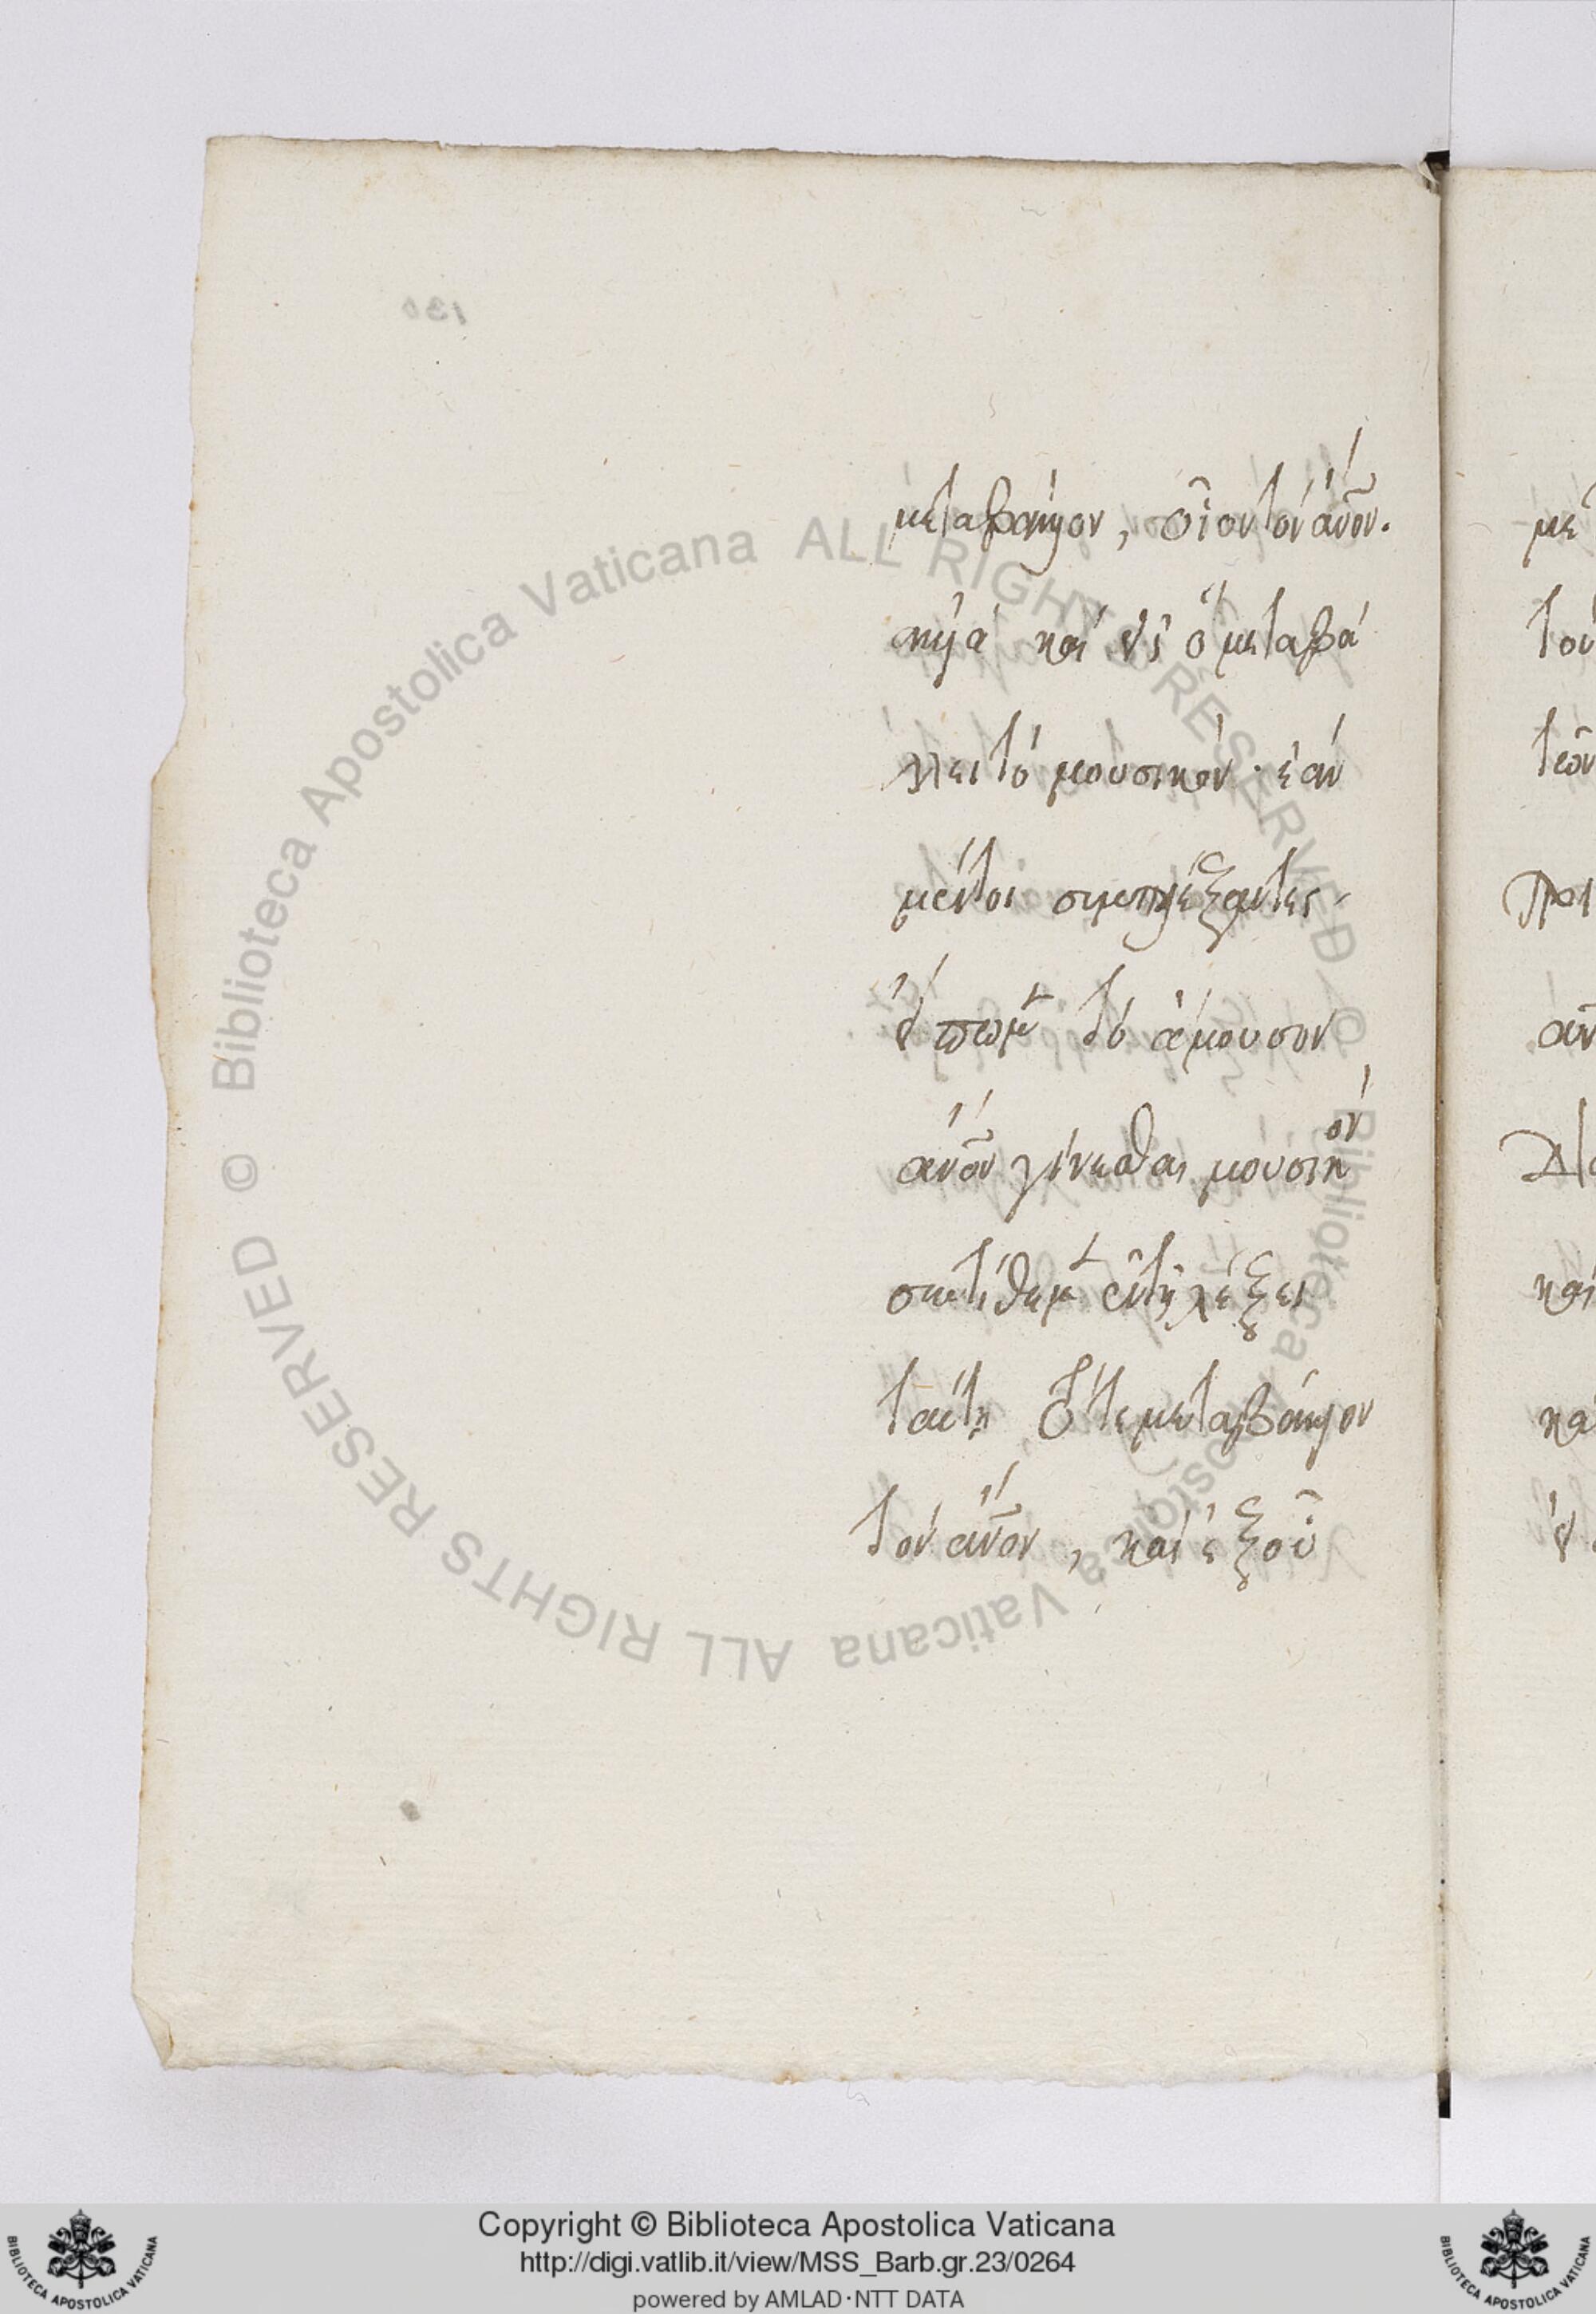 130
μεταβάλλον, οἷον τὸν ἄνον.
ἀλλὰ καὶ εἰς ὃ μεταβά
λλει τὸ μουσικόν · ἐὰν
μέντοι συμπλέξαντες
εἴπωμ τὸ ἄμουσον
ἄνον γίνεσθαι μουσικὸν
συντίθεμ ἐν τῇ λέξει
ταύτῃ τότε μεταβάλλον
τὸν ἄνον, καὶ ἐξ οὗ
με
του
τῶν
αν
και
κα
© Biblioteca Apostolica Vaticana ALL RIGHTS RESERVED © Biblioteca Apostolica Vaticana ALL RIGHTS RESERVED
BIBLIOTECA APOSTOLICA VATICANA
Copyright © Biblioteca Apostolica Vaticana
http://digi.vatlib.it/view/MSS_Barb.gr.23/0264
powered by AMLAD·NTT DATA
BIBLIOTECA APOSTOLICA VATICANA